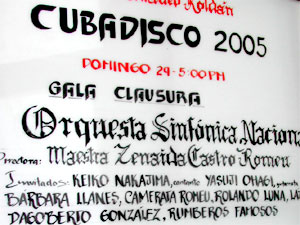 Roldán
CUBADISCO 2005
DOMINGO 29-5:00PM
GALA CLAUSURA
Orquesta Sinfónica, Naciona
Maestra Zenaida Castro Romeu
Invitados: KEIKO NAKAJIMA, YASUJI OHAGI,
BÁRBARA LLANES, CAMERATA ROMEU, ROLANDO LUNA,
DAGOBERTO GONZÁLEZ, RUMBEROS FAMOSOS